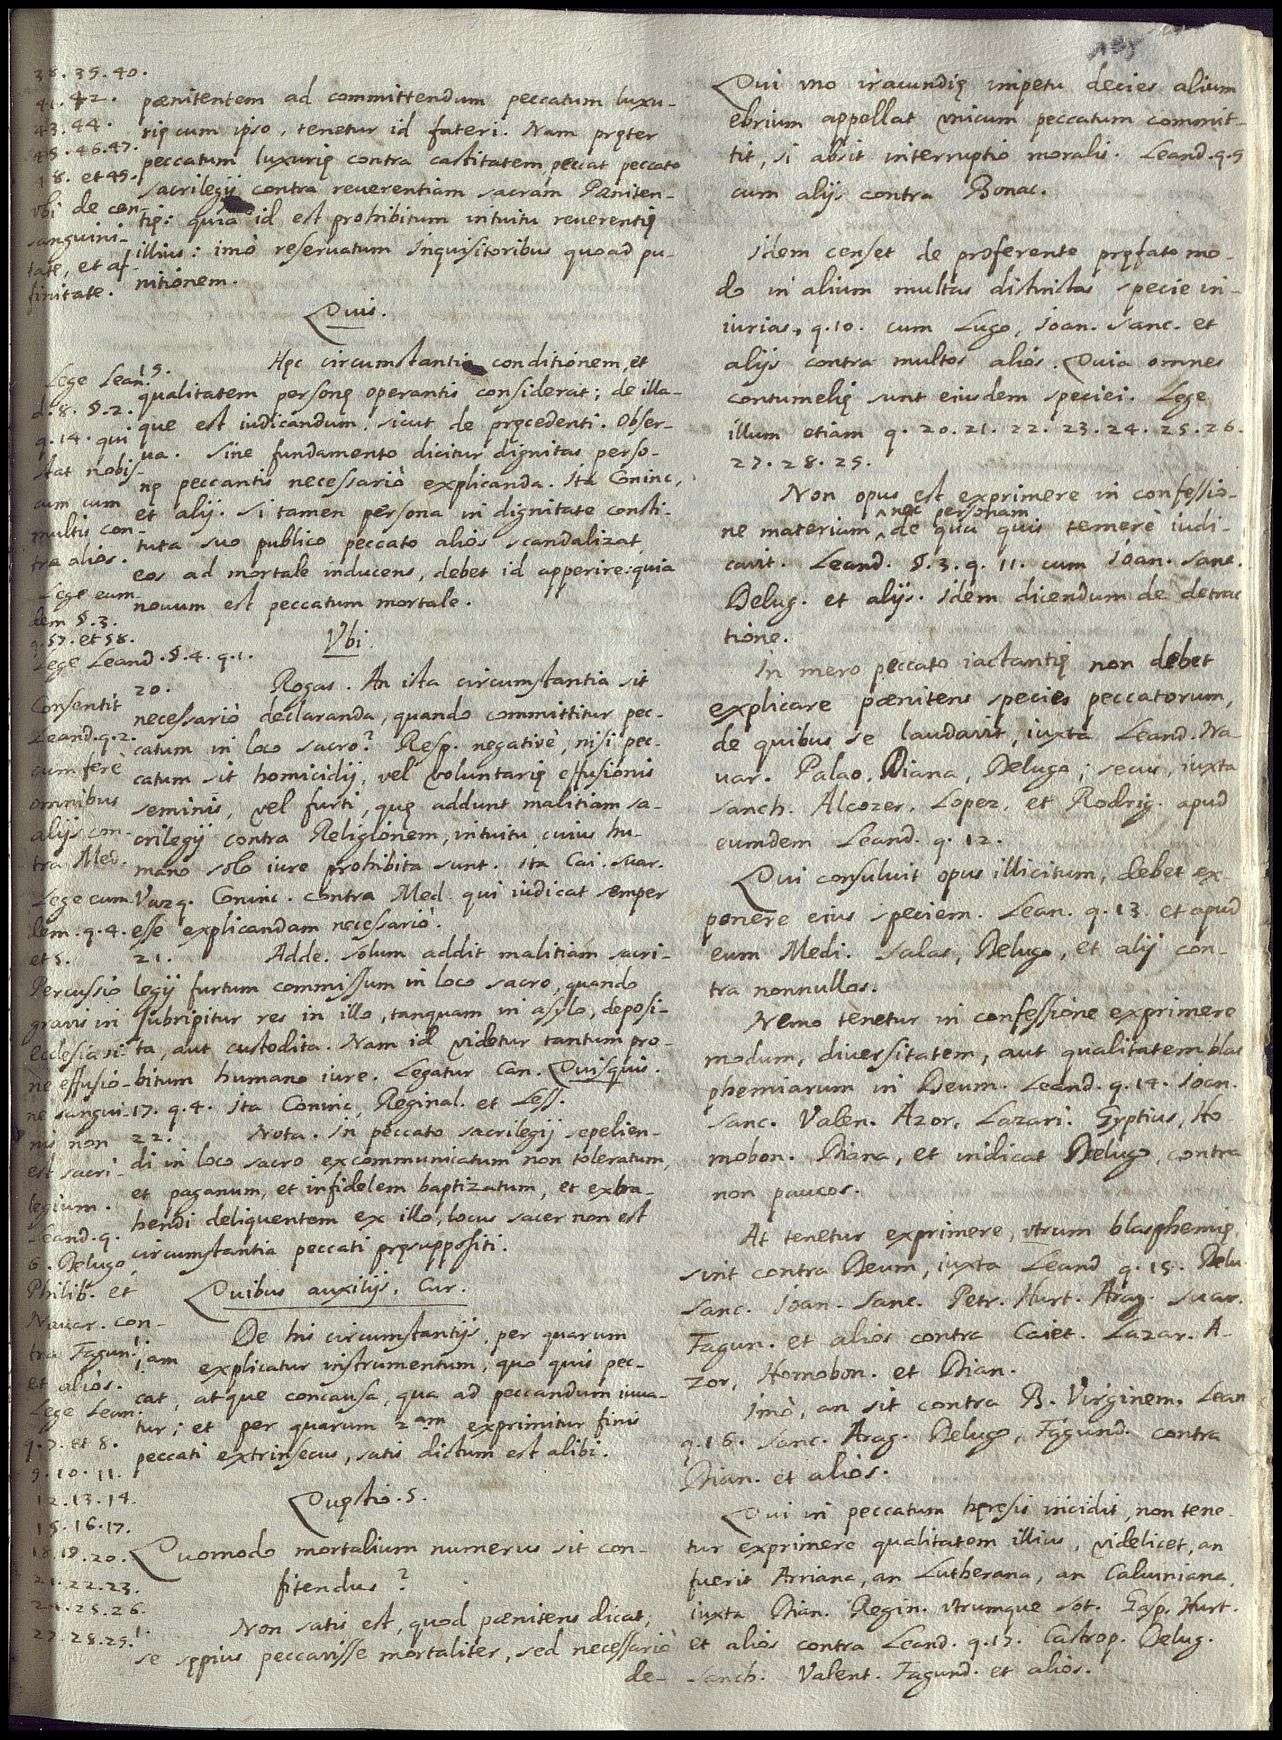 38. 39. 40.
41. 42.
43. 44.
45. 46. 47.
48. et 49.
vbi de con-
sanguini-
tate, et af-
finitate.
pænitentem ad committendum peccatum luxu-
rię cum ipso, tenetur id fateri. Nam pręter
peccatum luxurię contra castitatem peccat peccato
sacrilegij contra reuerentiam sacram Pæniten-
tię: quia id est prohibitum intuitu reuerentię
illius: imò reseruatum Inquisitoribus quoad pu-
nitionem.
Quis.
Lege Lean.
d. 8. §. 2.
q. 14. qui
stat nobis-
cum cum
multis con
tra alios.
Lege eum-
dem §. 3.
q. 57. et 58.
19. Hęc circumstantia conditionem, et
qualitatem personę operantis considerat; de illa-
que est iudicandum, sicut de pręcedenti. Obser-
ua. Sine fundamento dicitur dignitas perso-
nę peccantis necessariò explicanda. Ita Coninc,
et alij. Si tamen persona in dignitate consti-
tuta suo publico peccato alios scandalizat,
eos ad mortale inducens, debet id apperire: quia
nouum est peccatum mortale.
Vbi.
Lege Leand. §. 4. q. 1.
Consentit
Leand. q. 2.
cum ferè
omnibus
alijs con-
tra Med.
Lege eum
dem. q. 4.
et 5.
20. Rogas. An ista circumstantia sit
necessariò declaranda, quando committitur pec-
catum in loco sacro? Resp. negatiuè, nisi pec-
catum sit homicidij, vel voluntarię effusionis
seminis, vel furti, quę addunt malitiam sa-
crilegij contra Religionem, intuitu cuius hu-
mano solo iure prohibita sunt. Ita Cai. Suar.
Vazq. Coninc. contra Med. qui iudicat semper
esse explicandam necessariò.
Percussio
grauis in
ecclesia si-
nè effusio-
ne sangui-
nis non
est sacri-
legium.
Leand. q.
6. Delugo,
Philib. et
Nauar. con-
tra Fagun.
et alios.
Lege Lean.
q. 7. et 8.
9. 10. 11.
12. 13. 14.
15. 16. 17.
18. 19. 20.
21. 22. 23.
24. 25. 26.
27. 28. 29.
21. Adde. Solum addit malitiam sacri-
legij furtum commissum in loco sacro, quando
subripitur res in illo, tanquam in asylo, deposi-
ta, aut custodita. Nam id videtur tantum pro-
bitum humano iure. Legatur Can. Quisquis.
17. q. 4. Ita Coninc, Reginal. et Less.
22. Nota. In peccato sacrilegij sepelien-
di in loco sacro excommunicatum non toleratum,
et paganum, et infidelem baptizatum, et extra-
hendi deliquentem ex illo, locus sacer non est
circumstantia peccati pręsuppositi.
Quibus auxilijs. Cur.
De his circumstantijs, per quarum
1.am explicatur instrumentum, quo quis pec-
cat, atque concausa, qua ad peccandum iuua-
tur; et per quarum 2am exprimitur finis
peccati extrinsecus, satis dictum est alibi.
Quęstio. 5.
Quomodo mortalium numerus sit con-
fitendus?
1. Non satis est, quod pænitens dicat,
se sępius peccauisse mortaliter, sed necessariò
de-
Qui vno iracundię impetu decies alium
ebrium appellat vnicum peccatum commit-
tit, si absit interruptio moralis. Leand. q. 9
cum alijs contra Bonac.
Idem censet de proferente pręfato mo-
do in alium multas distinctas specie in-
iurias, q. 10. cum Lugo, Ioan. Sanc. et
alijs contra multos alios. Quia omnes
contumelię sunt eiusdem speciei. Lege
illum etiam q. 20. 21. 22. 23. 24. 25. 26.
27. 28. 29.
Non opus est exprimere in confessio-
nec personam
ne materium, de qua quis temerè iudi-
cauit. Leand. §. 3. q. 11. cum Ioan. Sanc.
Delug. et alijs. Idem dicendum de detrac
tione.
In mero peccato iactantię non debet
explicare pænitens species peccatorum,
de quibus se laudauit, iuxta Leand. Na-
uar. Palao, Diana, Delugo; secus, iuxta
Sanch. Alcozer, Lopez, et Rodrig. apud
eumdem Leand. q. 12.
Qui consuluit opus illicitum, debet ex-
ponere eius speciem. Lean. q. 13. et apud
eum Medi. Salas, Delugo, et alij con-
tra nonnullos.
Nemo tenetur in confessione exprimere
modum, diuersitatem, aut qualitatem blas
phemiarum in Deum. Leand. q. 14. Ioan.
Sanc. Valen. Azor, Lazari. Gyptius, Ho
mobon. Diana, et indicat Delugo, contra
non paucos.
At tenetur exprimere, vtrum blasphemię
sint contra Deum, iuxta Leand. q. 15. Delu.
Sanc. Ioan. Sanc. Petr. Hurt. Arag. Suar.
Fagun. et alios contra Caiet. Lazar. A-
zor, Homobon. et Dian.
Imò, an sit contra B. Virginem. Lean
q. 16. Sanc. Arag. Delugo, Fagund. contra
Dian. et alios.
Qui in peccatum hęresis incidit, non tene-
tur exprimere qualitatem illius, videlicet, an
fuerit Arriana, an Lutherana, an Caluiniana,
iuxta Dian. Regin. vtrumque Sot. Gasp. Hurt.
et alios contra Leand. q. 17. Castrop. Delug.
Sanch. Valent. Fagund. et alios.